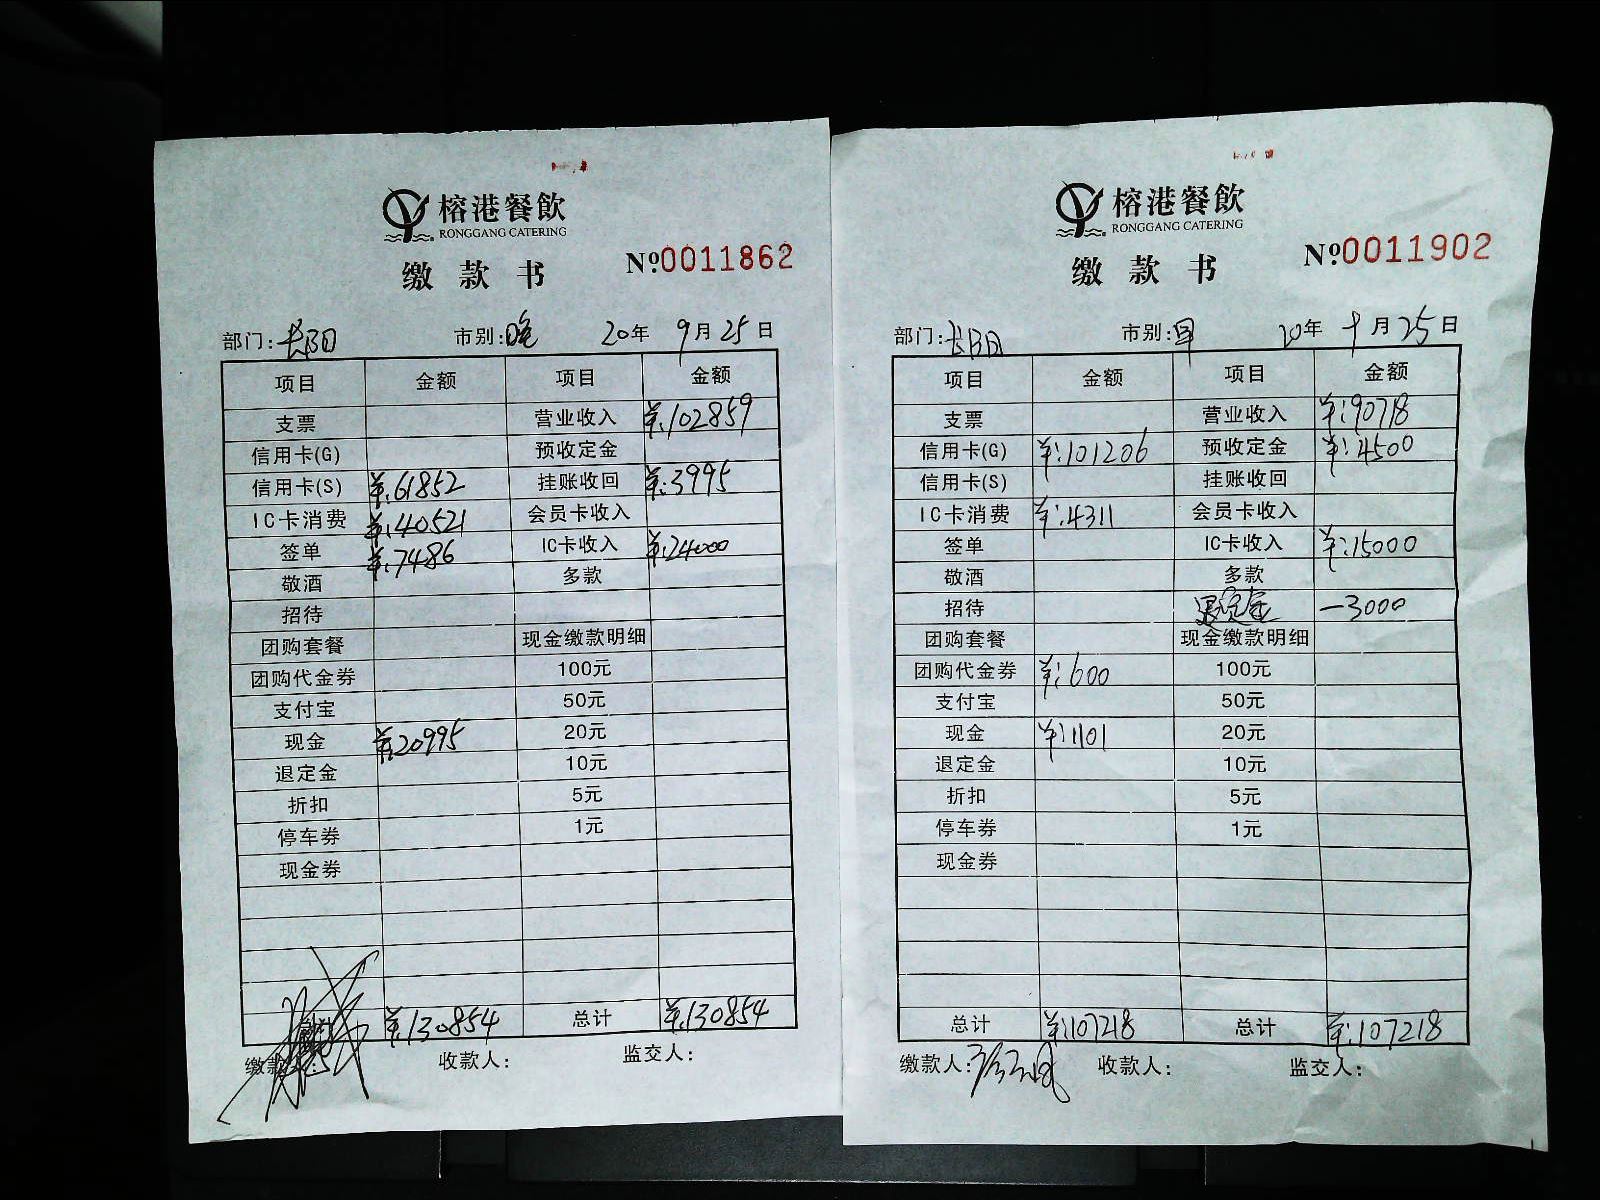 榕港餐飲
RONGGANG CATERING
缴款书 №0011862
部门:长阳 市别:晚 20年9月25日
项目 金额 项目 金额
支票 营业收入 ¥:102859
信用卡(G) 预收定金
信用卡(S) ¥:61852 挂账收回 ¥:3995
IC卡消费 ¥:40521 会员卡收入
签单 ¥:7486 IC卡收入 ¥:24000
敬酒 多款
招待
团购套餐 现金缴款明细
团购代金券 100元
支付宝 50元
现金 ¥:20995 20元
退定金 10元
折扣 5元
停车券 1元
现金券
¥:130854 总计 ¥:130854
缴款 收款人: 监交人:
榕港餐飲
RONGGANG CATERING
缴款书 №0011902
部门:长阳 市别:早 20年9月25日
项目 金额 项目 金额
支票 营业收入 ¥:90718
信用卡(G) ¥:101206 预收定金 ¥:4500
信用卡(S) 挂账收回
IC卡消费 ¥:4311 会员卡收入
签单 IC卡收入 ¥:15000
敬酒 多款
招待 退定金 -3000
团购套餐 现金缴款明细
团购代金券 ¥:600 100元
支付宝 50元
现金 ¥:1101 20元
退定金 10元
折扣 5元
停车券 1元
现金券
总计 ¥:107218 总计 ¥:107218
缴款人: 收款人: 监交人: